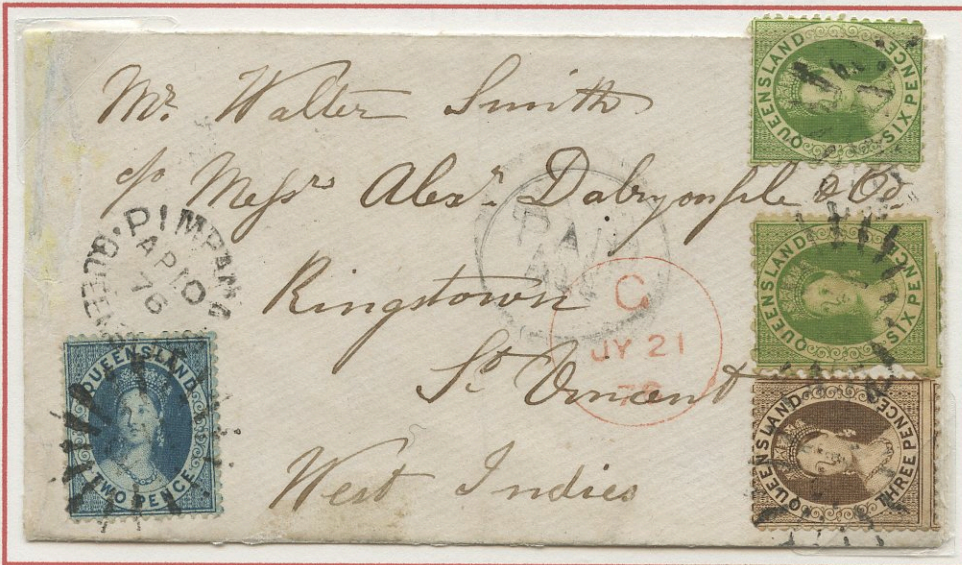 Mr. Walter Smith
c/o Messrs Alexr. Dalrymple & Co.
Kingstown
St. Vincent
West Indies
PIMPAMA
QUEENSLAND
AP 10
76
PAID
C
JY 21
QUEENSLAND
TWO PENCE
QUEENSLAND
SIX PENCE
QUEENSLAND
SIX PENCE
QUEENSLAND
THREE PENCE